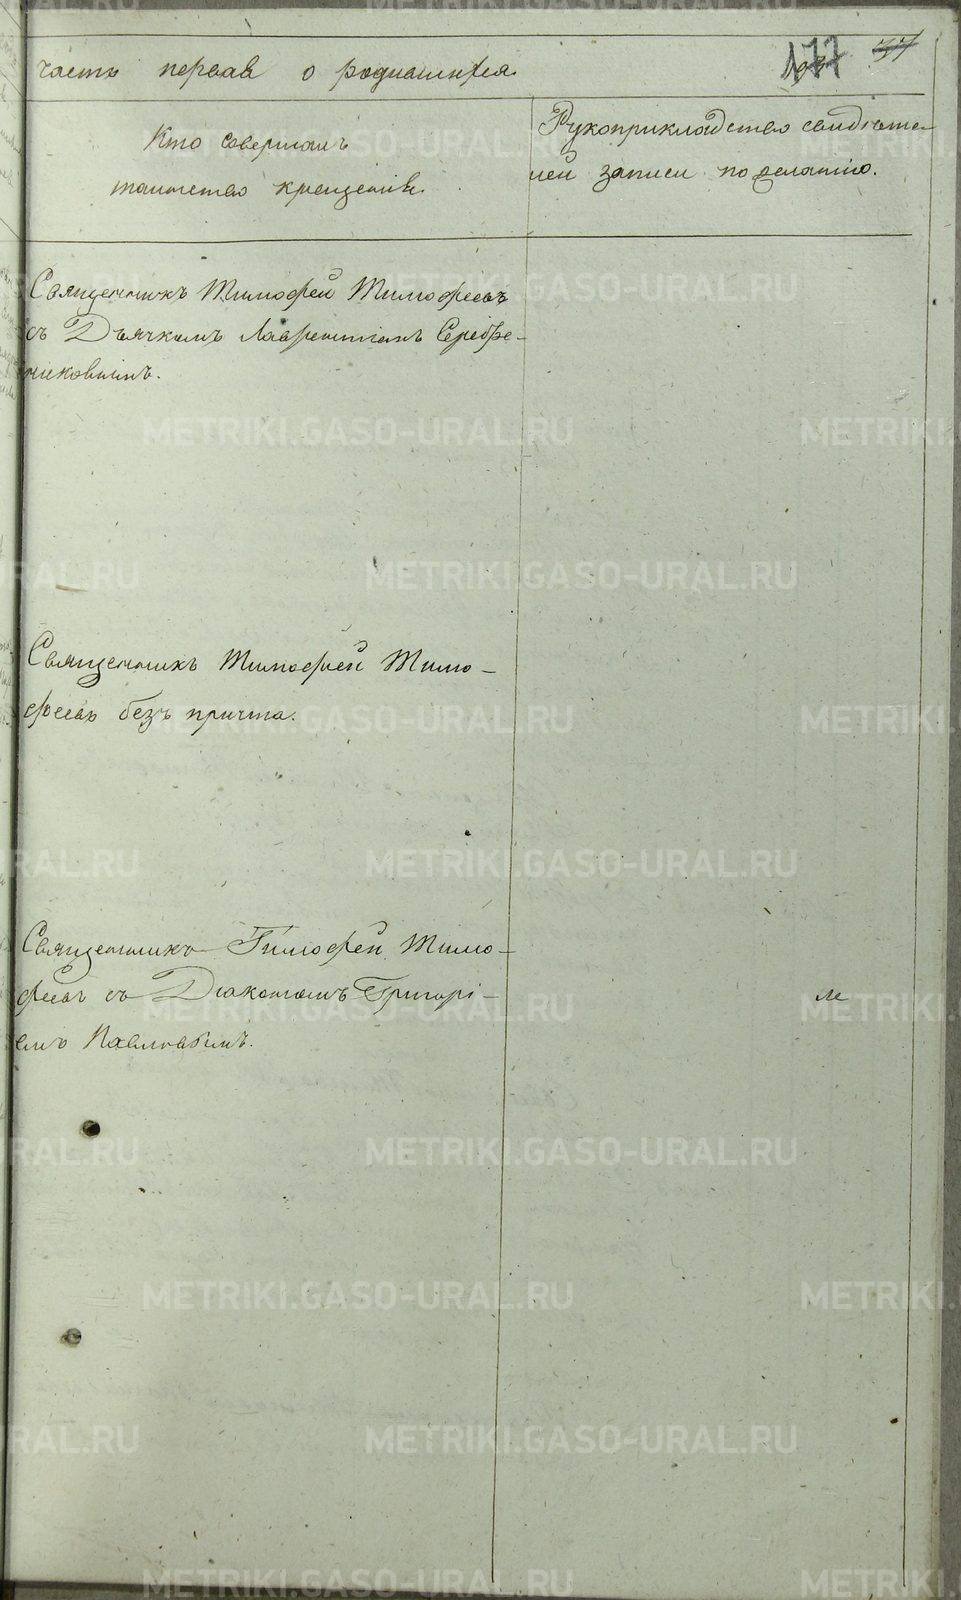 часть первая о родившихся
177 37
Кто совершалъ
таинство крещенiя.
Рукоприкладство свидѣте-
лей записи по желанiю.
Священникъ Тимофей Тимофеевъ
съ Дьячкомъ Лаврентiемъ Серебре-
никовымъ.
Священникъ Тимофей Тимо-
феевъ безъ причта.
Священникъ Тимофей Тимо-
феевъ съ Дiакономъ Григорi-
емъ Павловымъ.
METRIKI.GASO-URAL.RU